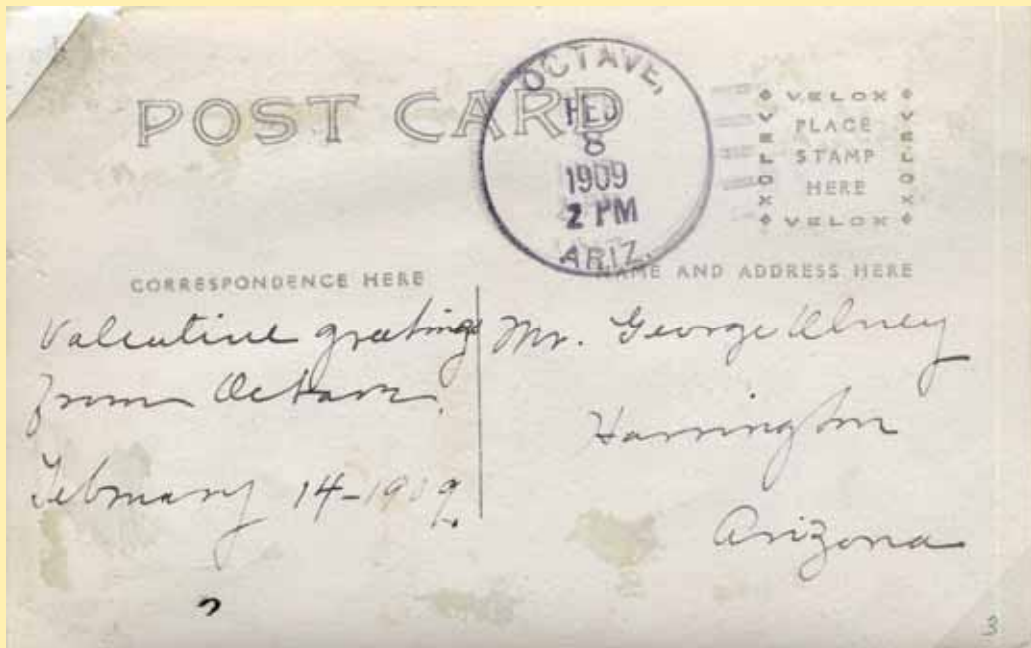 POST CARD
OCTAVE,
FEB
8
1909
2 PM
ARIZ.
VELOX
VELOX
PLACE
STAMP
HERE
VELOX
VELOX
CORRESPONDENCE HERE
NAME AND ADDRESS HERE
Valentine greetings
from Octave.
February 14-1909.
Mr. George Olney
Harrington
Arizona
3